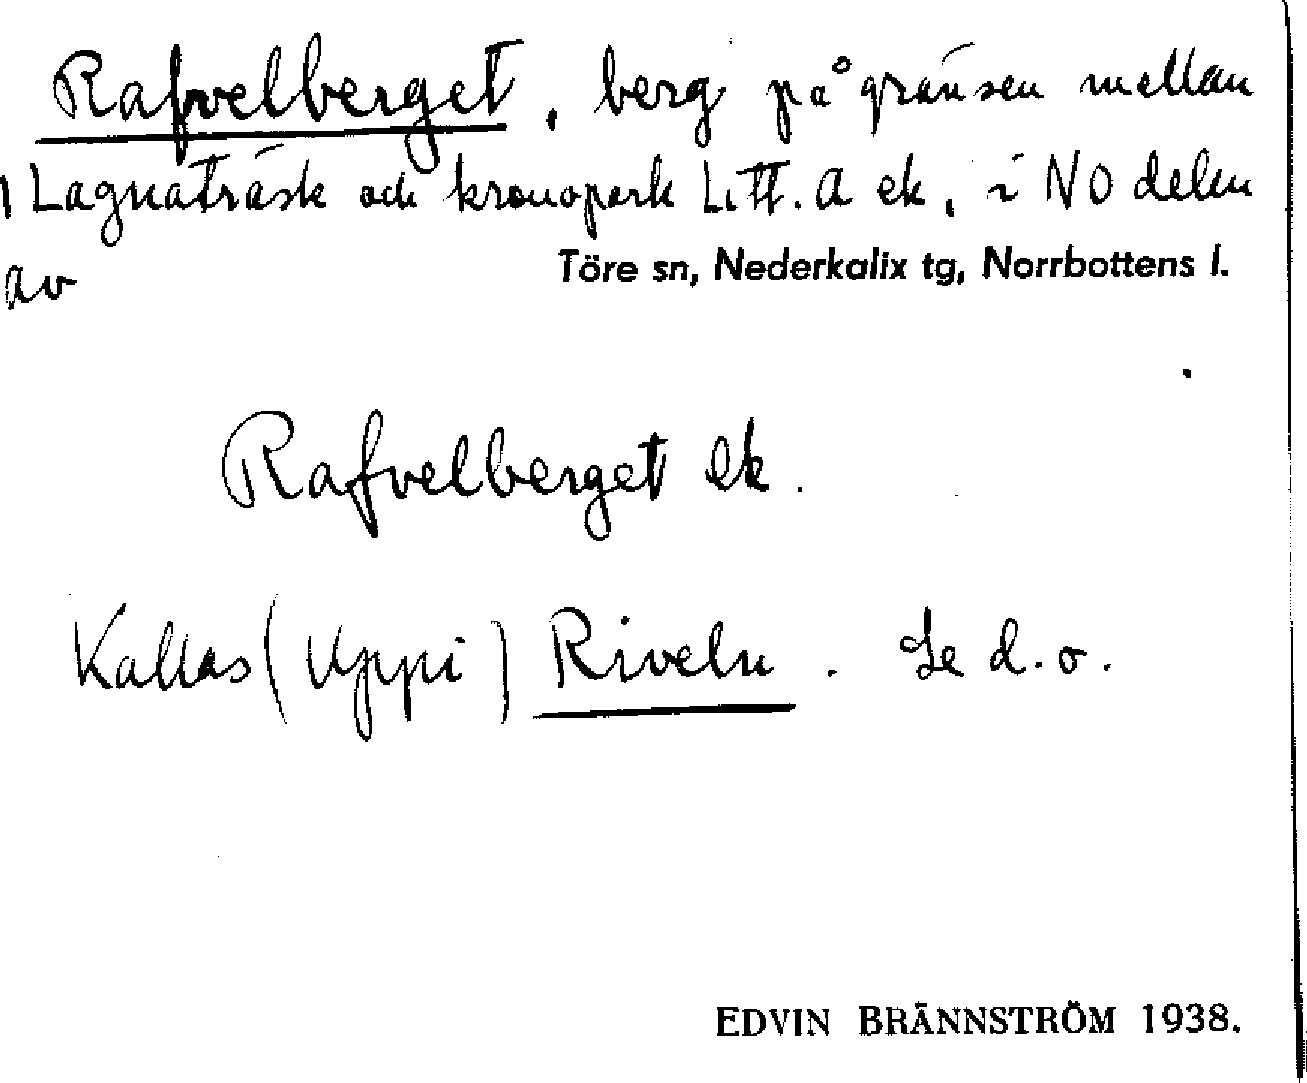 Rafvelberget, berg på gränsen mellan
Lagnaträsk och kronopark Litt. A ek, i NO delen
av
Töre sn, Nederkalix tg, Norrbottens l.
Rafvelberget ek.
Kallas (Uppi) Riveln. Se d.o.
EDVIN BRÄNNSTRÖM 1938.